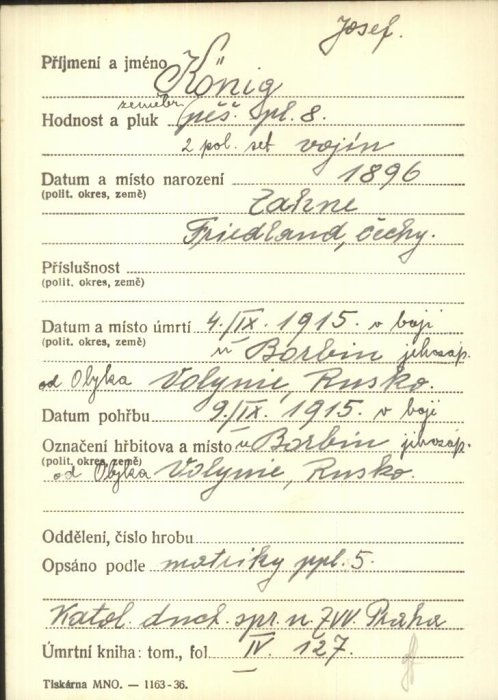 Josef.
Příjmení a jméno König
zeměbr.
Hodnost a pluk pěš. pl. 8.
2 pol. set vojín
Datum a místo narození 1896
(polit. okres, země) Zahne
Friedland, Čechy.
Příslušnost
(polit. okres, země)
Datum a místo úmrtí 4./IX. 1915. v boji
(polit. okres, země) u Borbin jihozáp.
od Olyka Volynie, Rusko.
Datum pohřbu 9./IX. 1915. v boji
Označení hřbitova a místo u Borbin jihozáp.
(polit. okres, země)
od Olyka Volynie, Rusko.
Oddělení, číslo hrobu
Opsáno podle matriky ppl. 5.
Katol. duch. spr. u ZVV. Praha
Úmrtní kniha: tom., fol. IV. 127.
Tiskárna MNO. — 1163-36.